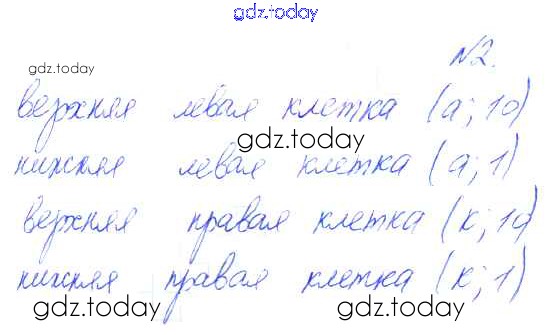 gdz.today
№2.
gdz.today
верхняя левая клетка (а; 10)
gdz.today
нижняя левая клетка (а; 1)
gdz.today
верхняя правая клетка (к; 10)
нижняя правая клетка (к; 1)
gdz.today gdz.today